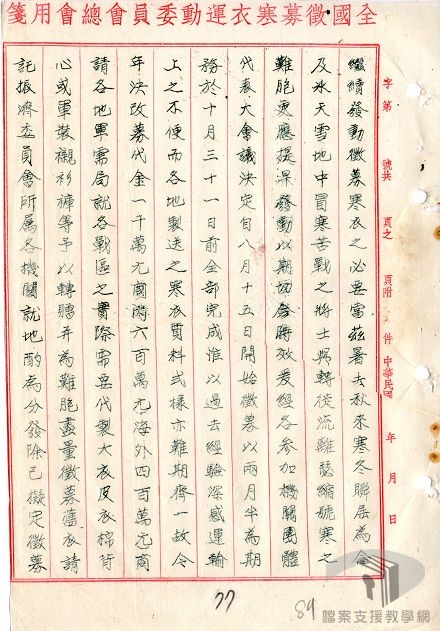 全國徵募寒衣運動委員會總會用箋
字第　號共　頁之　頁附　件中華民國　年　月　日
繼續發動徵募寒衣之必要當茲暑去秋來寒冬瞬屆為念
及冰天雪地中冒寒苦戰之將士與轉徙流離瑟縮號寒之
難胞更應提早發動以期切合時效爰經各參加機關團體
代表大會議決定自八月十五日開始徵募以兩月半為期
務於十月三十一日前全部完成惟以過去經驗深感運輸
上之不便而各地製送之寒衣質料式樣亦難期齊一故今
年決改募代金一千萬元國內六百萬元海外四百萬元商
請各地軍需局就各戰區之實際需要代製大衣皮衣棉背
心或軍裝襯衫褲等予以轉贈并為難胞盡量徵募舊衣請
託振濟委員會所屬各機關就地酌為分發除已擬定徵募
77
89
檔案支援教學網